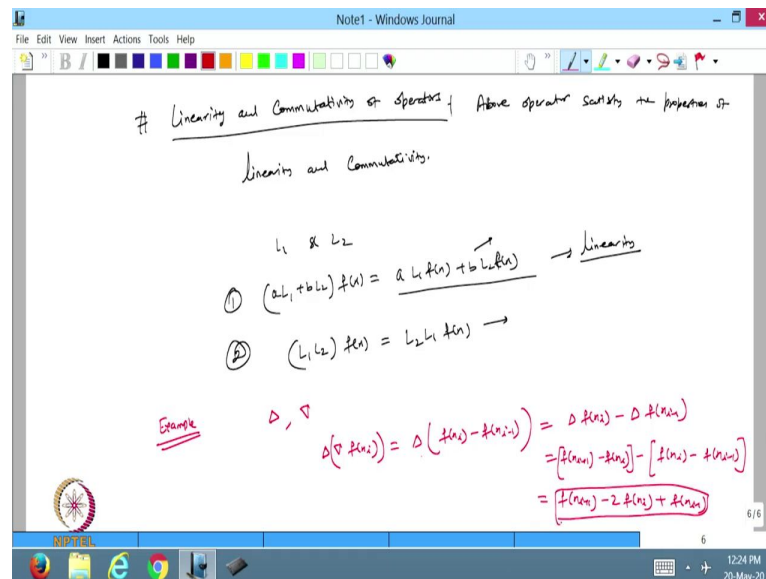 Note1 - Windows Journal
File Edit View Insert Actions Tools Help
B I
# Linearity and Commutativity of operators { Above operator satisfy the properties of
linearity and Commutativity.
L₁ & L₂
① (aL₁+bL₂) f(x) = a L₁ f(x) + b L₂ f(x) → linearity
② (L₁L₂) f(x) = L₂L₁ f(x) →
Example Δ, ∇
Δ(∇ f(xᵢ)) = Δ(f(xᵢ) - f(xᵢ₋₁)) = Δ f(xᵢ) - Δ f(xᵢ₋₁)
= [f(xᵢ₊₁) - f(xᵢ)] - [f(xᵢ) - f(xᵢ₋₁)]
= f(xᵢ₊₁) - 2 f(xᵢ) + f(xᵢ₋₁)
6/6
NPTEL
6
12:24 PM
20-May-20